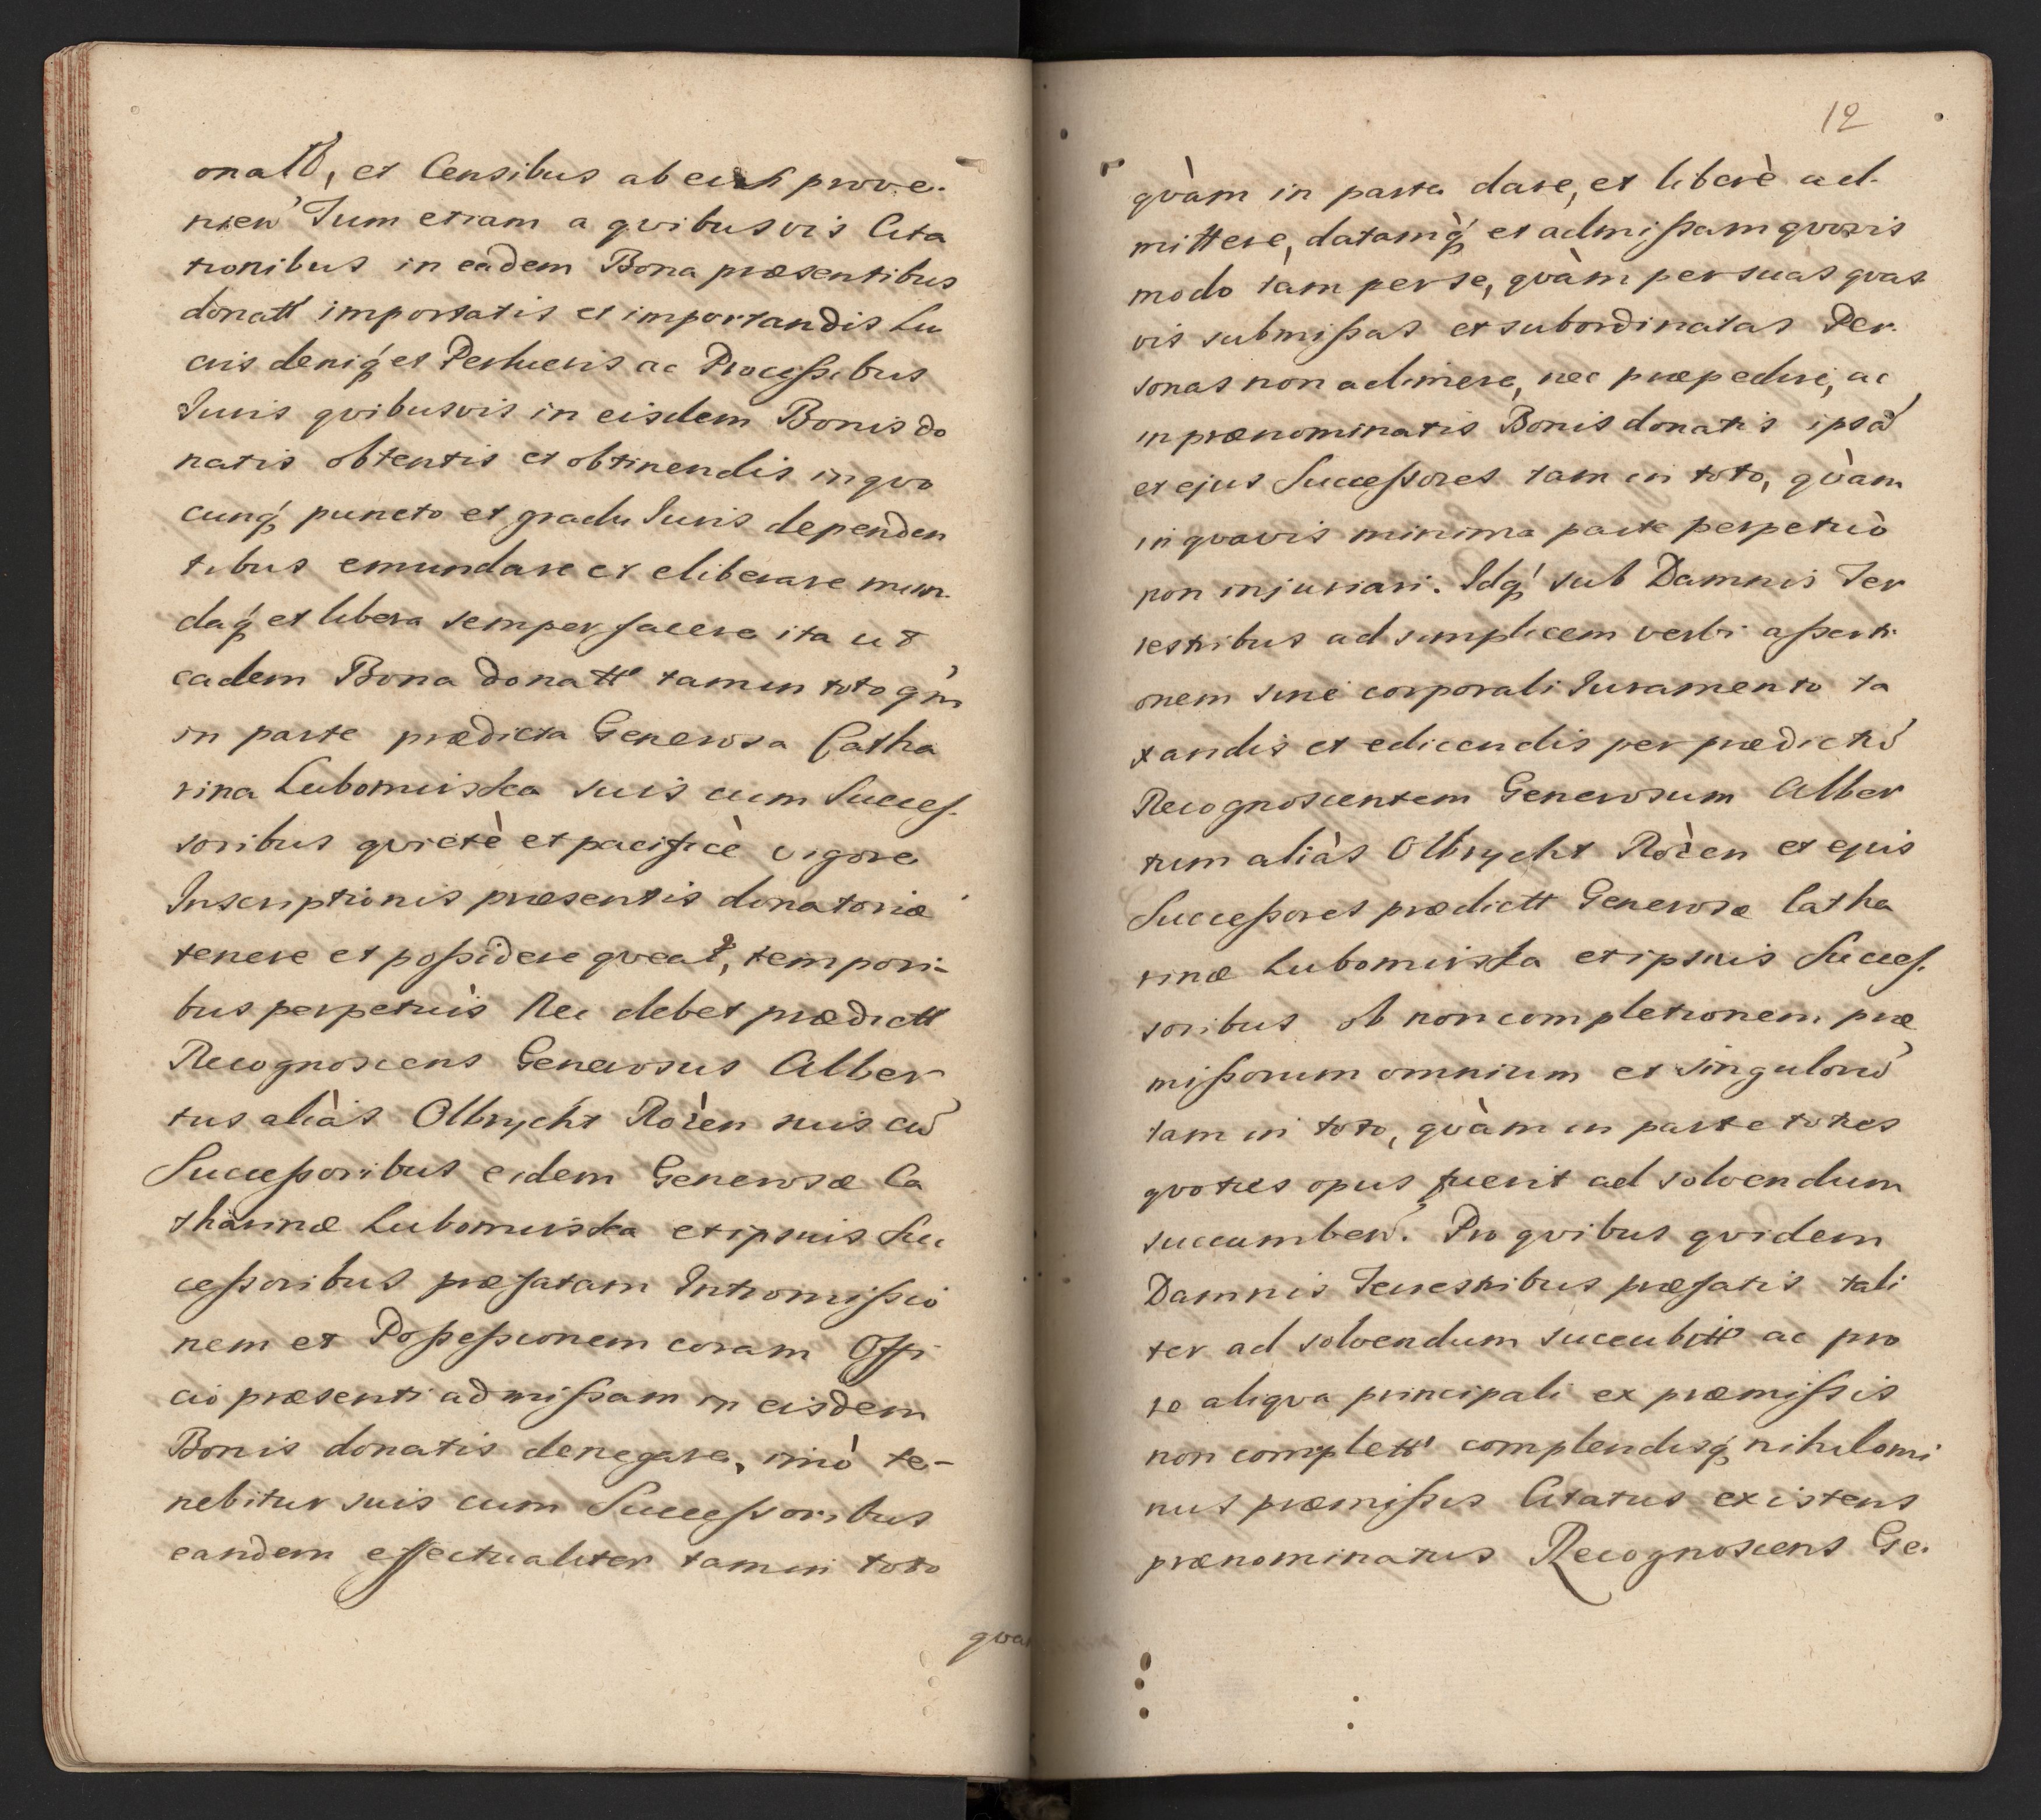 onatt, et Censibus ab eisd prove-
nien Tum etiam a qvibusvis Cita
tionibus in eadem Bona præsentibus
donatt importatis et importandis Lu
cris deniq́ et Perlucris ac Processibus
Iuris qvibusvis in eisdem Bonis do
natis obtentis et obtinendis in qvo
cunq́ puncto et gradu Iuris dependen
tibus emundare et eliberare mun-
daq́ et libera semper facere ita ut
eadem Bona donatt tam in toto qm̀
in parte prædicta Generosa Catha
rina Lubomirska suis cum Succes-
soribus qvietè et pacificè vigore
Inscriptionis præsentis donatoriæ
tenere et possidere qveat, tempori-
bus perpetuis Nec debet prædictt
Recognoscens Generosus Alber
tus aliàs Olbrycht Rożen suis cũ
Successoribus eidem Generosæ Ca
tharinæ Lubomirska et ipsius Suc
cessoribus præfatam Intromissio
nem et Possessionem coram Offi
cio præsenti admissam in eisdem
Bonis donatis denegare, imò te-
nebitur suis cum Successoribus
eandem effectualiter tam in toto
qva
12
qvàm in parte dare, et liberè ad-
mittere, datamq́ et admissam qvovis
modo tàm per se, qvàm per suas qvas
vis submissas et subordinatas Per-
sonas non adimere, nec præpedire, ac
in prænominatis Bonis donatis ipsã
et ejus Successores tam in toto, qvàm
in qvavis minima parte perpetuò
non injuriari. Idq́ sub Damnis Ter
restribus ad simplicem verbi asserti-
onem sine corporali Iuramento ta
xandis et edicendis per prædictũ
Recognoscentem Generosum Alber
tum aliàs Olbrycht Rożen et ejus
Successores prædictt Generosæ Catha
rinæ Lubomirska et ipsius Succes-
soribus ob non completionem præ
missorum omnium et singulorũ
tam in toto, qvàm in parte toties
qvoties opus fuerit ad solvendum
succumben. Pro qvibus qvidem
Damnis Terrestribus præfatis tali
ter ad solvendum succubitt ac pro
re aliqva principali ex præmissis
non complett complendisq́ nihilomi
nus præmissis Citatus existens
prænominatus Recognoscens Ge-